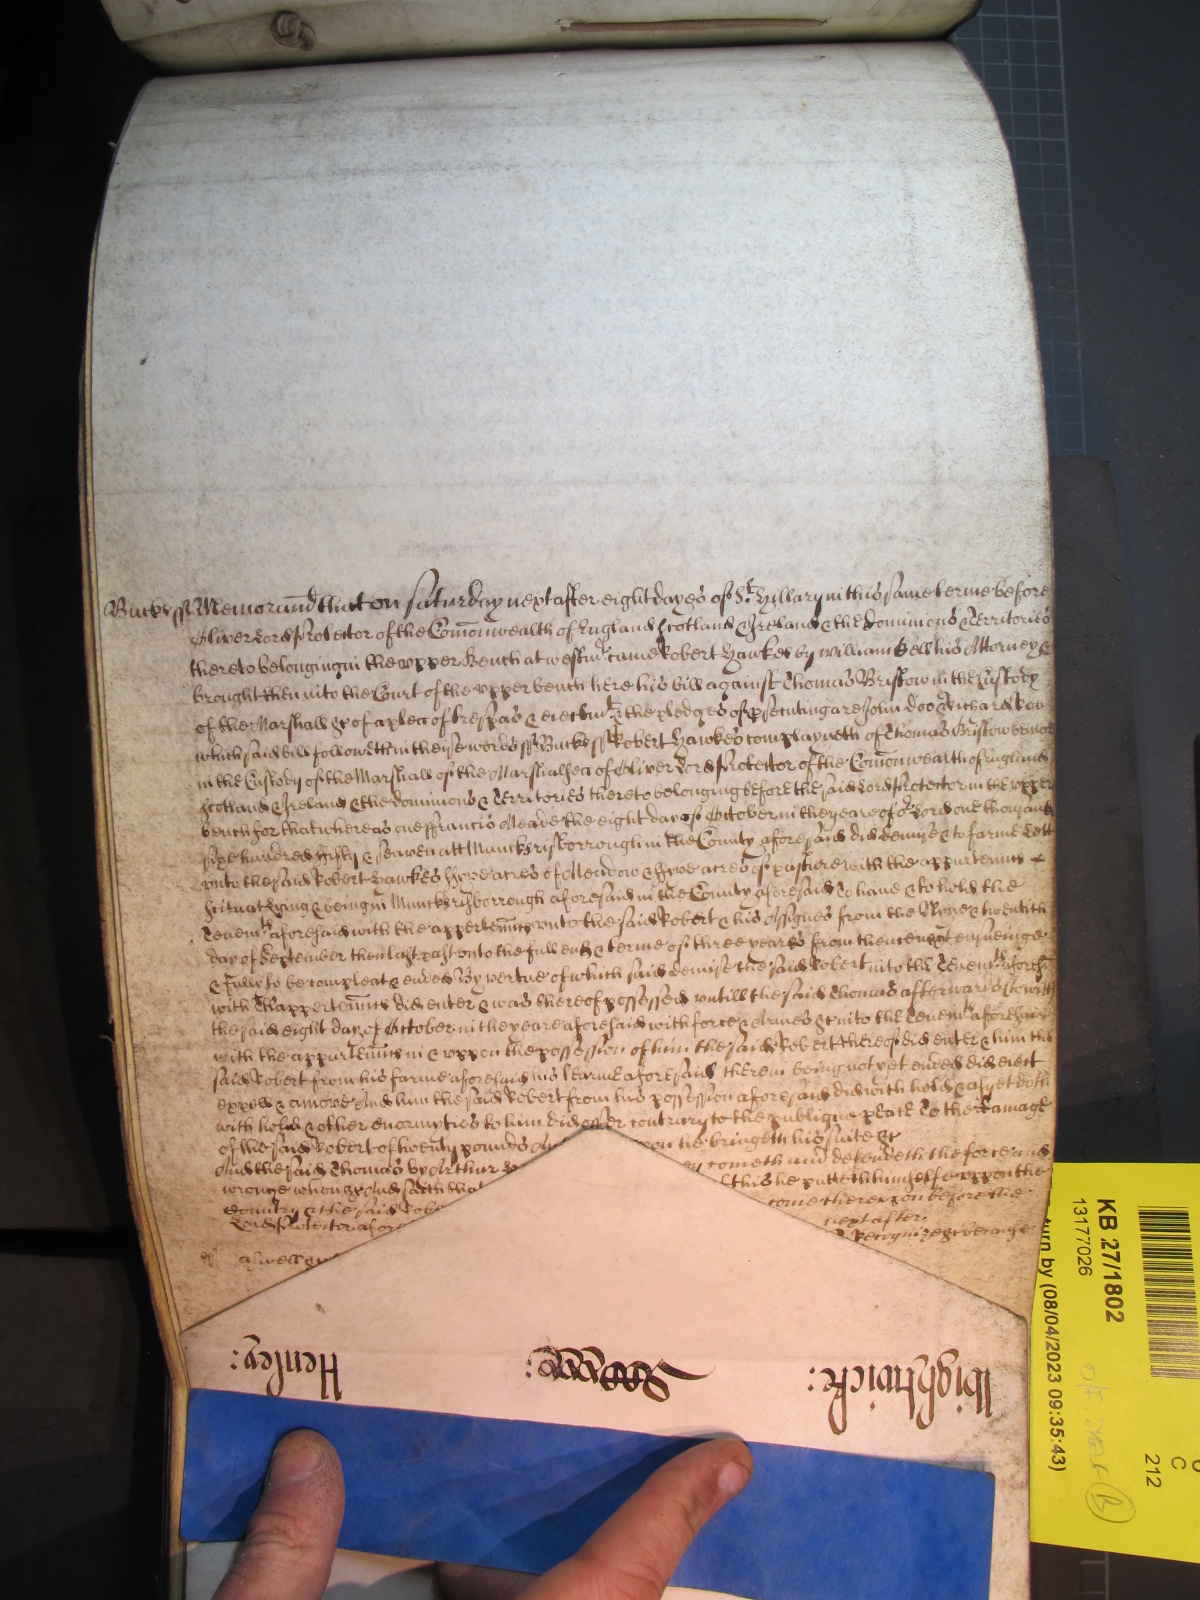 Bucks ss Memorand that on Saturday next after eight dayes of St. Hillary in this same terme before
Oliver Lord Protector of the Comonwealth of England Scotland & Ireland & the dominions & Territories
thereto belonging in the upper Bench at westmr. came Robert Hawkes by william Bell his Attorney &
brought then into the Court of the upper bench here his bill against Thomas Bristow in the Custody
of the Marshall &c of a plea of trespas & eiectmt. & the pledges of psecuting are John Doo & Richard Roo
which said bill followeth in theise words ss Bucks ss Robert Hawkes complayneth of Thomas Bristow being
in the Custody of the Marshall of the Marshalsea of Oliver Lord Protector of the Comonwealth of England
Scotland & Ireland & the dominions & Territories thereto belonging before the said Lord Protector in the upper
bench for that whereas one ffrancis Meade the eight day of October in the yeare of or. Lord one thousand
sixe hundred fifty & seaven att Muncks risborrough in the County aforesaid did demise & to farme lett
unto the said Robert Hawkes fyve acres of Meadow & fyve acres of pasture with the appurtennts
scituat lying & being in Muncks risborrough aforesaid in the County aforesaid To have & to hold the
Tenemts. aforesaid with the appertennts unto the said Robert & his Assignes from the Nyne & twentith
day of September then last past unto the full end & terme of three yeares from thence next ensueinge
& fully to be compleat & ended By vertue of which said demise the said Robert into the Tenemts. aforesd.
with Thappertennts did enter & was thereof possessed untill the said Thomas afterwards (to witt)
the said eight day of October in the yeare aforesaid with force & Armes &c into the Tenemts. aforesaid
with the appurtennts in & uppon the possession of him the said Robert thereof did enter & him the
said Robert from his farme aforesaid his tearme aforesaid therein being not yet ended did eiect
expell & amove And him the said Robert from his possession aforesaid did with hold & as yet doth
with hold & other enormyties to him did offer contrary to the publique peace To the damage
of the said Robert of twenty pounds And upon he bringeth his suite &c
And the said Thomas by Arthur cometh and defendeth the force and
wronge when &c And saith that this he putteth himselfe uppon the
Country & the said Robe come thereupon before the
Lord Protector afore next after
aswell Recognize &c because
Henley:
Wightwick:
KB 27/1802
13177026
urn by (08/04/2023 09:35:43)
C
212
B